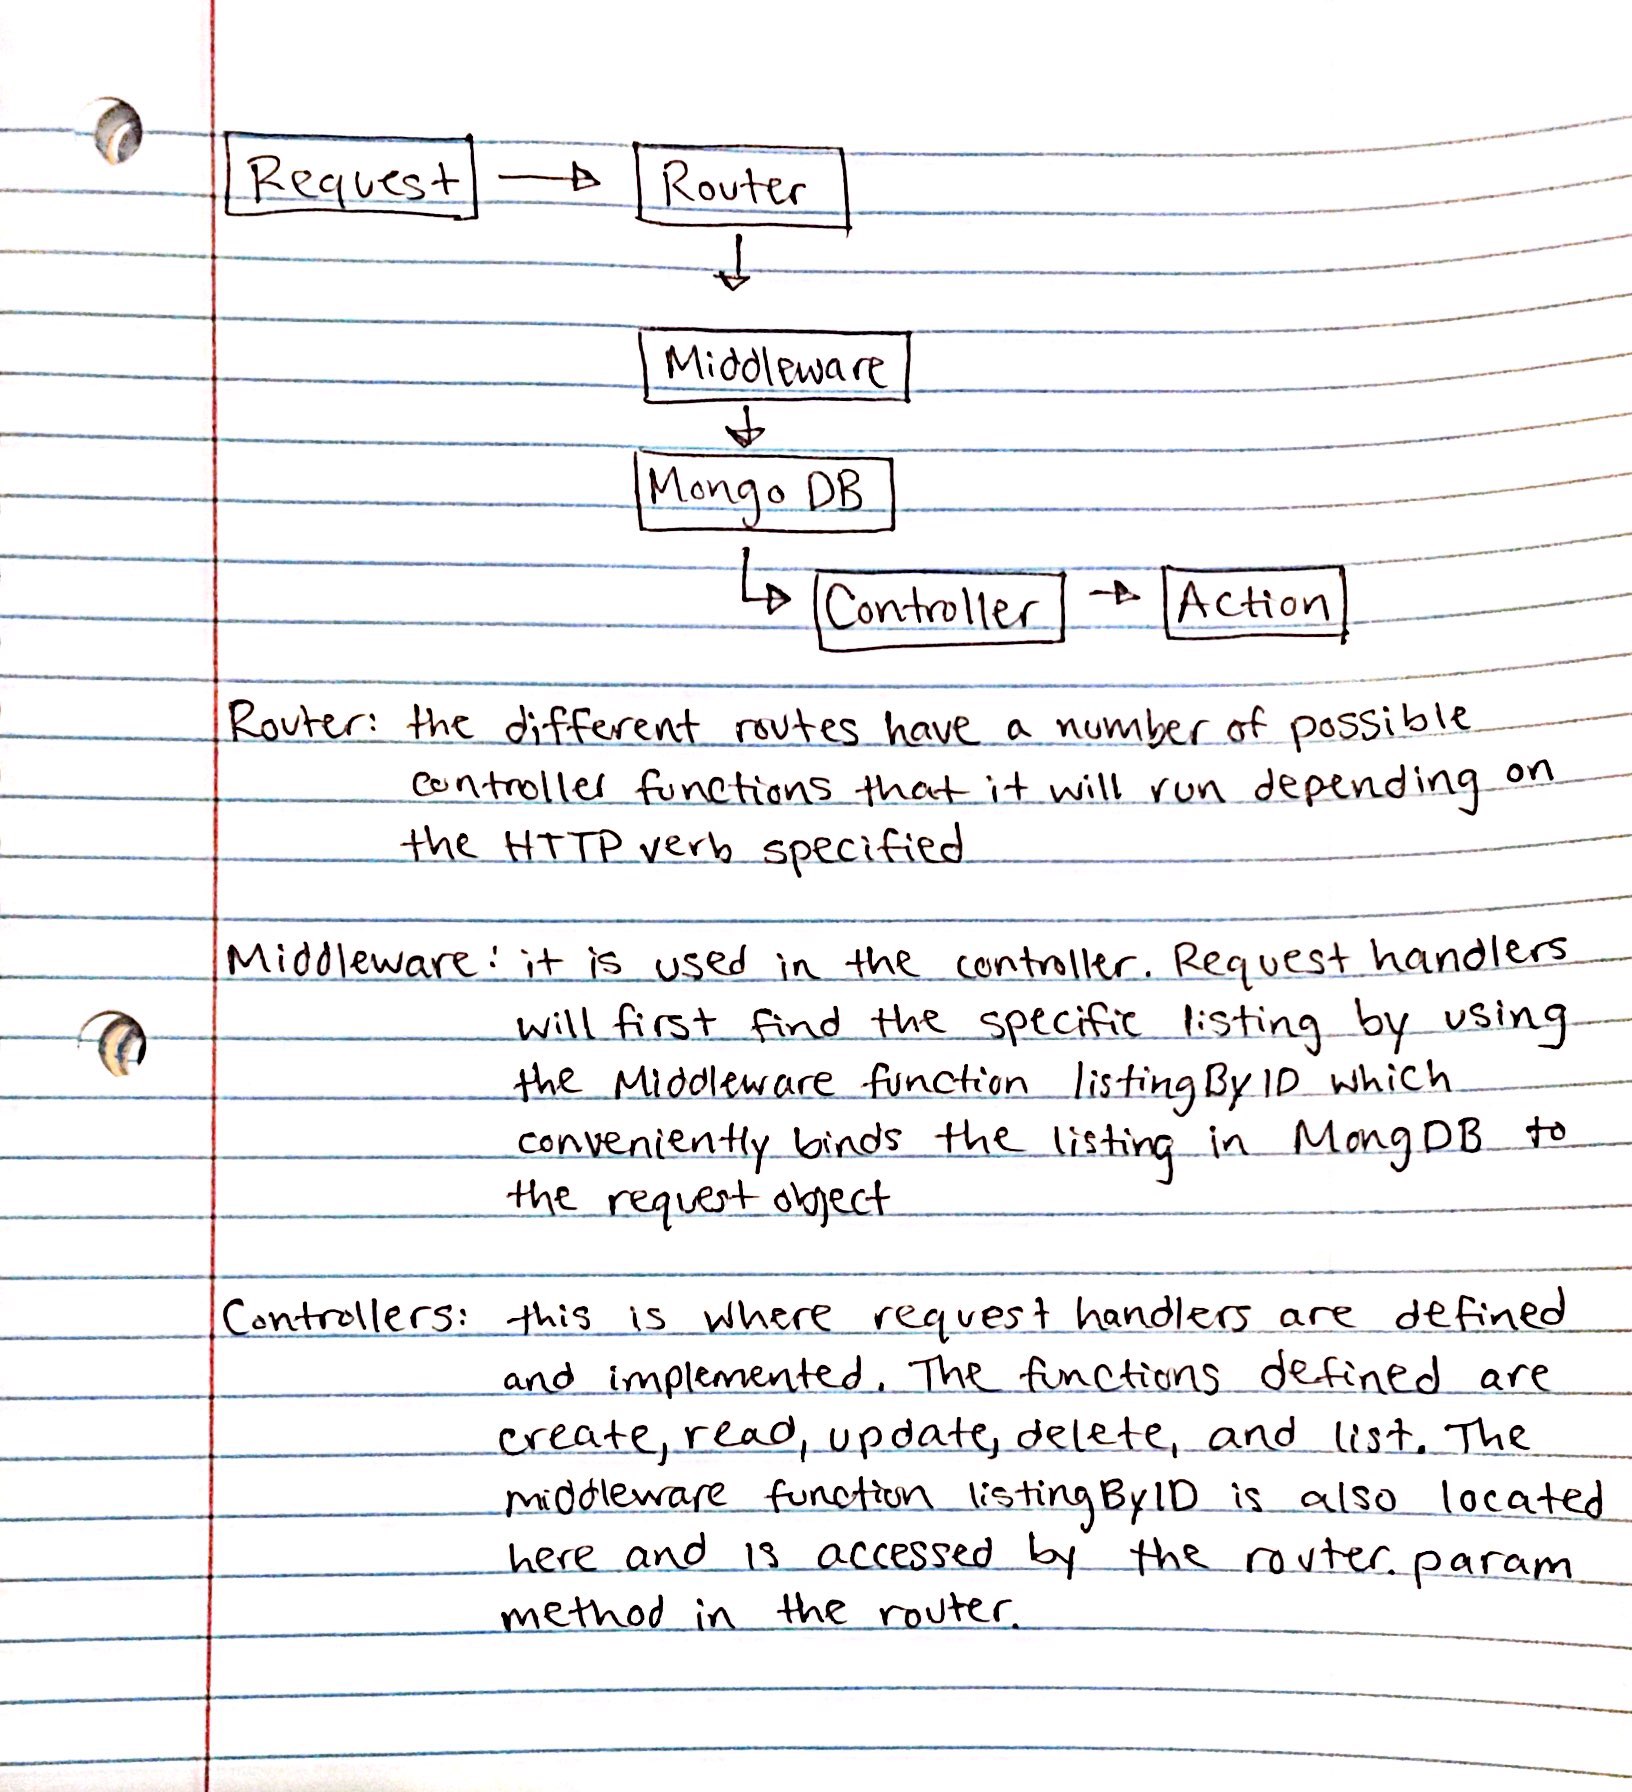 Request
Router
Middleware
Mongo DB
Controller
Action
Router: the different routes have a number of possible
controller functions that it will run depending on
the HTTP verb specified
Middleware: it is used in the controller. Request handlers
will first find the specific listing by using
the Middleware function listingByID which
conveniently binds the listing in MongDB to
the request object
Controllers: this is where request handlers are defined
and implemented. The functions defined are
create, read, update, delete, and list. The
middleware function listingByID is also located
here and is accessed by the router.param
method in the router.